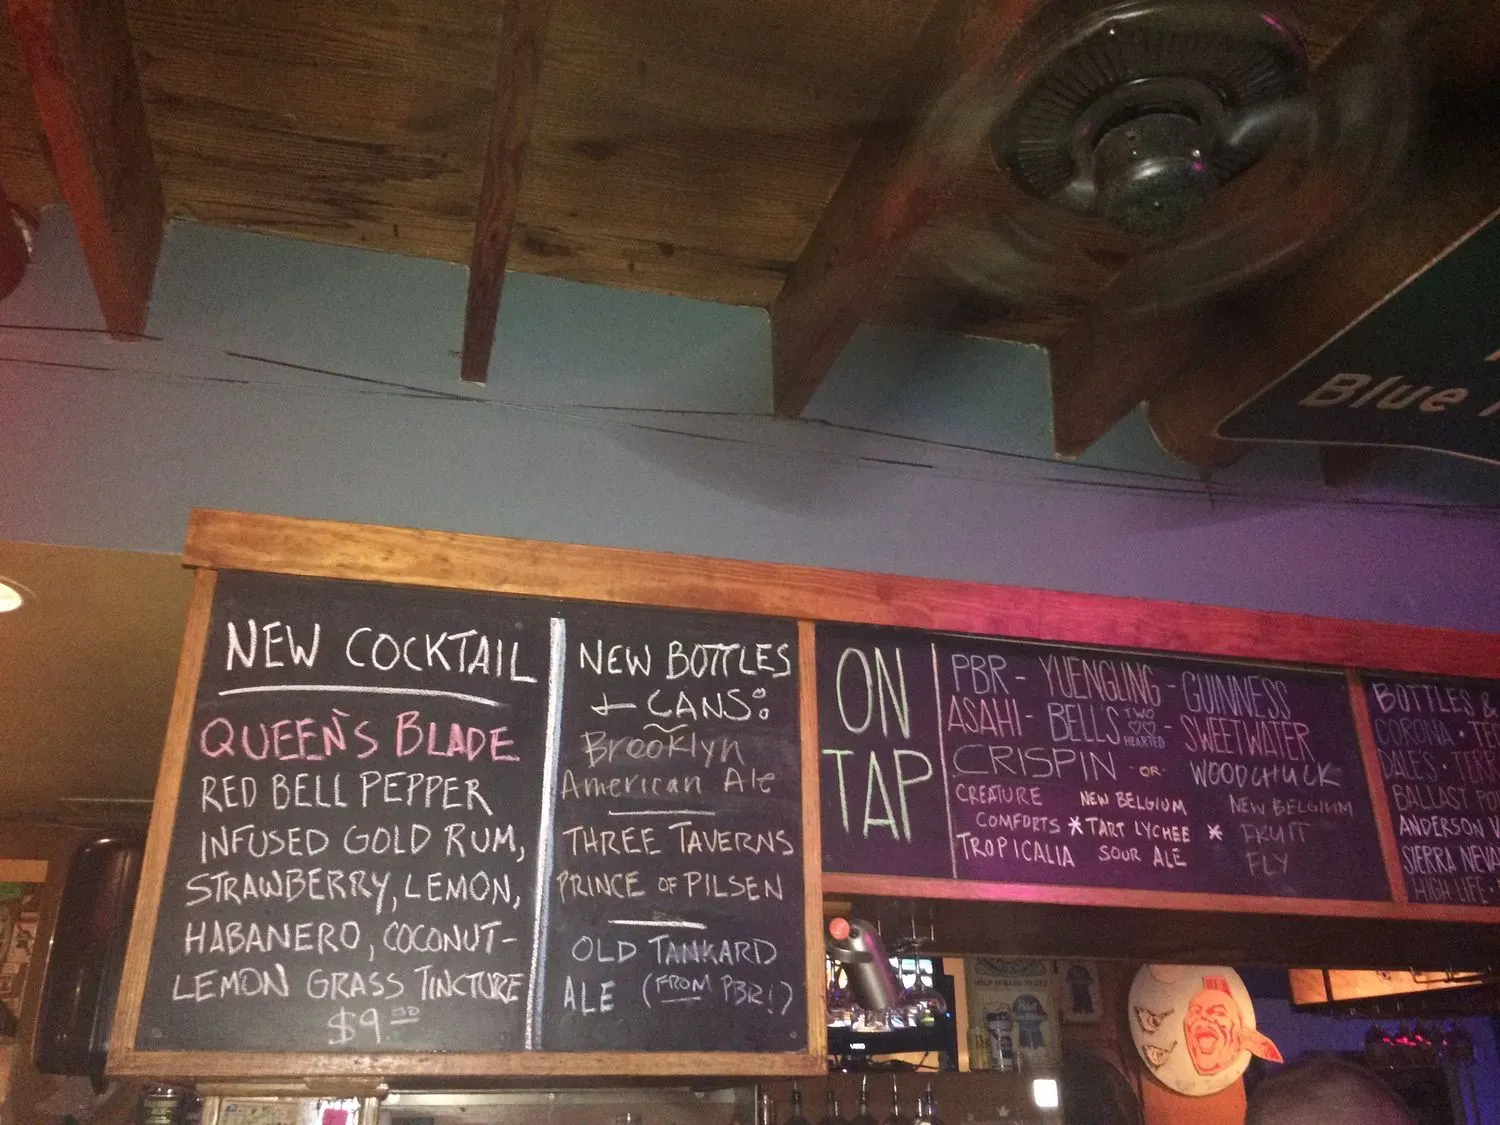 Blue
NEW COCKTAIL
QUEEN'S BLADE
RED BELL PEPPER
INFUSED GOLD RUM,
STRAWBERRY, LEMON,
HABANERO, COCONUT-
LEMON GRASS TINCTURE
$9.00
NEW BOTTLES
+ CANS:
Brooklyn
American Ale
THREE TAVERNS
PRINCE OF PILSEN
OLD TANKARD
ALE (FROM PBR!)
ON
TAP
PBR - YUENGLING - GUINNESS
ASAHI - BELL'S TWO HEARTED - SWEETWATER
CRISPIN -OR- WOODCHUCK
CREATURE
COMFORTS
TROPICALIA
* NEW BELGIUM
TART LYCHEE
SOUR ALE
* NEW BELGIUM
FRUIT
FLY
BOTTLES &
CORONA •
DALE'S •
BALLAST
ANDERSON
SIERRA
HIGH LIFE •